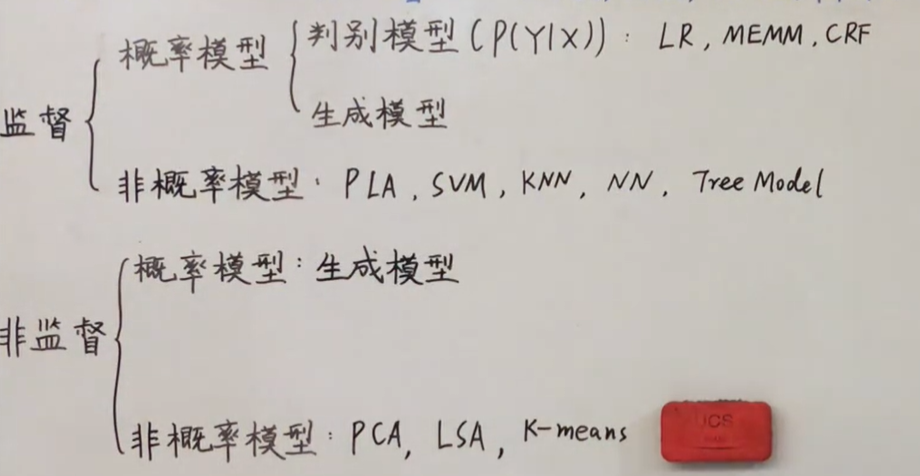 概率模型 判别模型(P(Y|X)): LR, MEMM, CRF
监督
生成模型
非概率模型: PLA, SVM, KNN, NN, Tree Model
概率模型: 生成模型
非监督
非概率模型: PCA, LSA, K-means